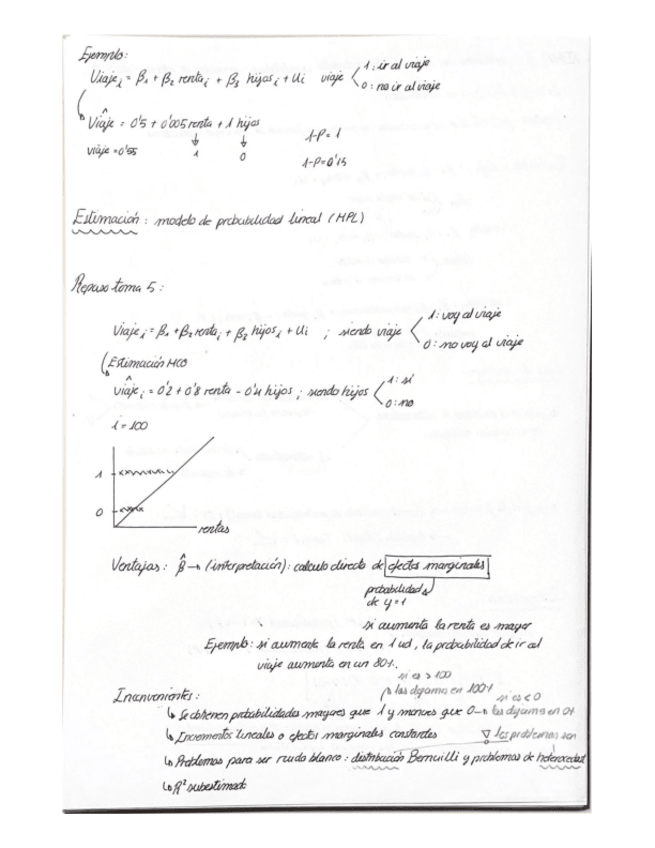 Ejemplo:
Viaje i = β1 + β2 renta i + β3 hijos i + Ui viaje < 1: ir al viaje
0: no ir al viaje
Viaje^ = 0'5 + 0'005 renta + 1 hijos
viaje = 0'55 1 0
1-P = 1
1-P = 0'45
Estimación: modelo de probabilidad lineal (MPL)
Repaso tema 5:
Viaje i = β1 + β2 renta i + β3 hijos i + Ui ; siendo viaje < 1: voy al viaje
0: no voy al viaje
Estimación MCO
viaje^ i = 0'2 + 0'8 renta - 0'4 hijos ; siendo hijos < 1: si
0: no
i = 100
1
0
rentas
Ventajas: β^ → (interpretación): calculo directo de efectos marginales
probabilidad
de y=1
si aumenta la renta es mayor
Ejemplo: si aumenta la renta en 1 ud, la probabilidad de ir al
viaje aumenta en un 80%.
si es > 100
las dejamos en 100%
Inconvenientes:
si es < 0
↳ Se obtienen probabilidades mayores que 1 y menores que 0 → las dejamos en 0%
↳ Incrementos lineales o efectos marginales constantes
los problemas son
↳ Problemas para ser ruido blanco: distribución Bernuilli y problemas de heteroced
↳ R² subestimado